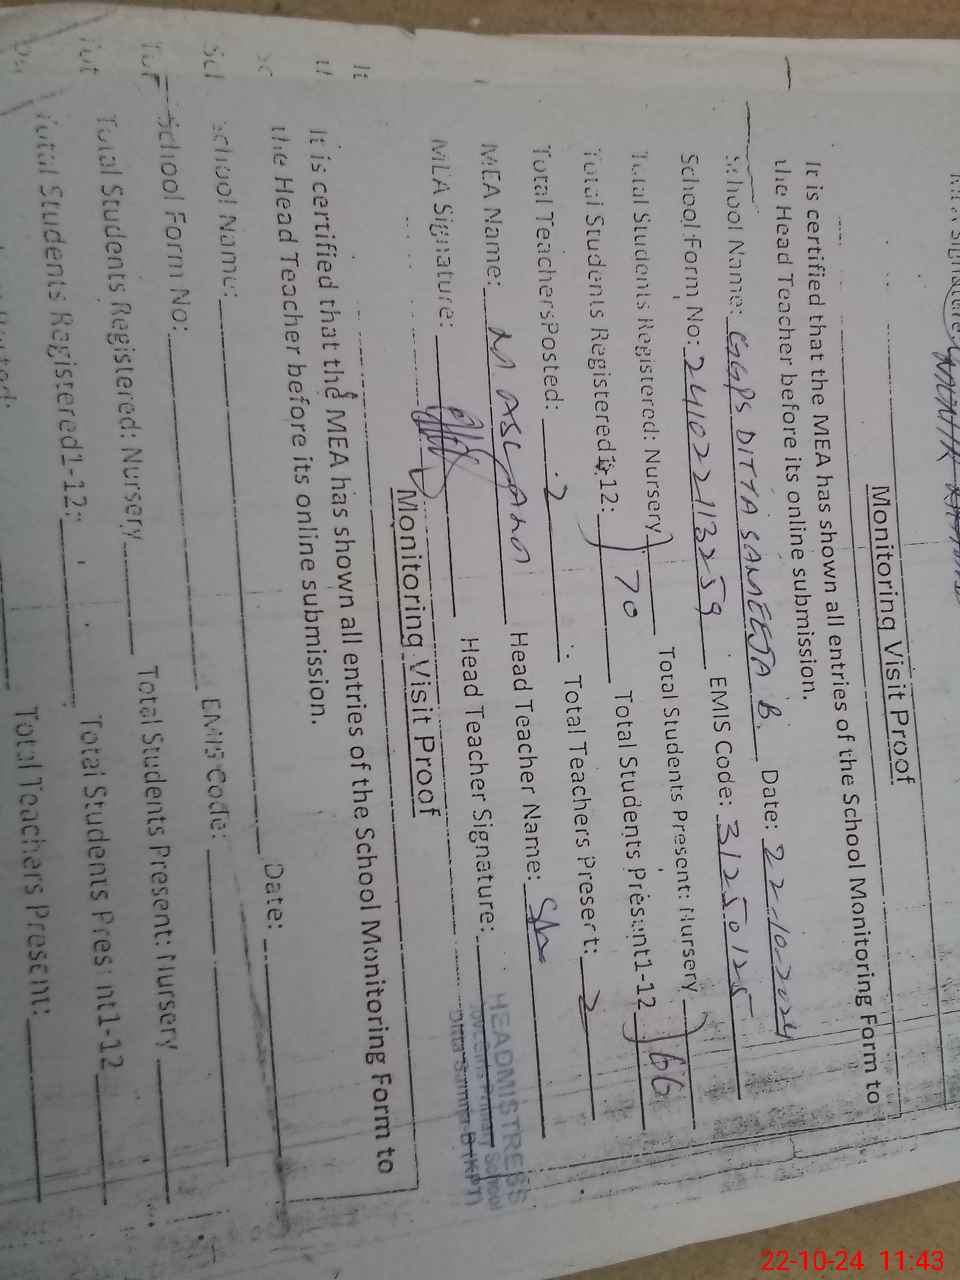 Monitoring Visit Proof
It is certified that the MEA has shown all entries of the School Monitoring Form to
the Head Teacher before its online submission.
School Name: GGPS DITTA SAMEEJA B. Date: 22-10-2024
School Form No: 2410221113259 EMIS Code: 31250125
Total Students Registered: Nursery Total Students Present: Nursery
Total Students Registered 1-12: 70 Total Students Present 1-12 66
Total Teachers Posted: 2 Total Teachers Present: 2
MEA Name: M ASLAM Head Teacher Name:
MEA Signature: Head Teacher Signature:
HEADMISTRESS
Govt. Girls Primary School
Monitoring Visit Proof
It is certified that the MEA has shown all entries of the School Monitoring Form to
the Head Teacher before its online submission.
School Name: Date:
School Form No: EMIS Code:
Total Students Registered: Nursery Total Students Present: Nursery
Total Students Registered 1-12: Total Students Present 1-12
Total Teachers Present:
22-10-24 11:43